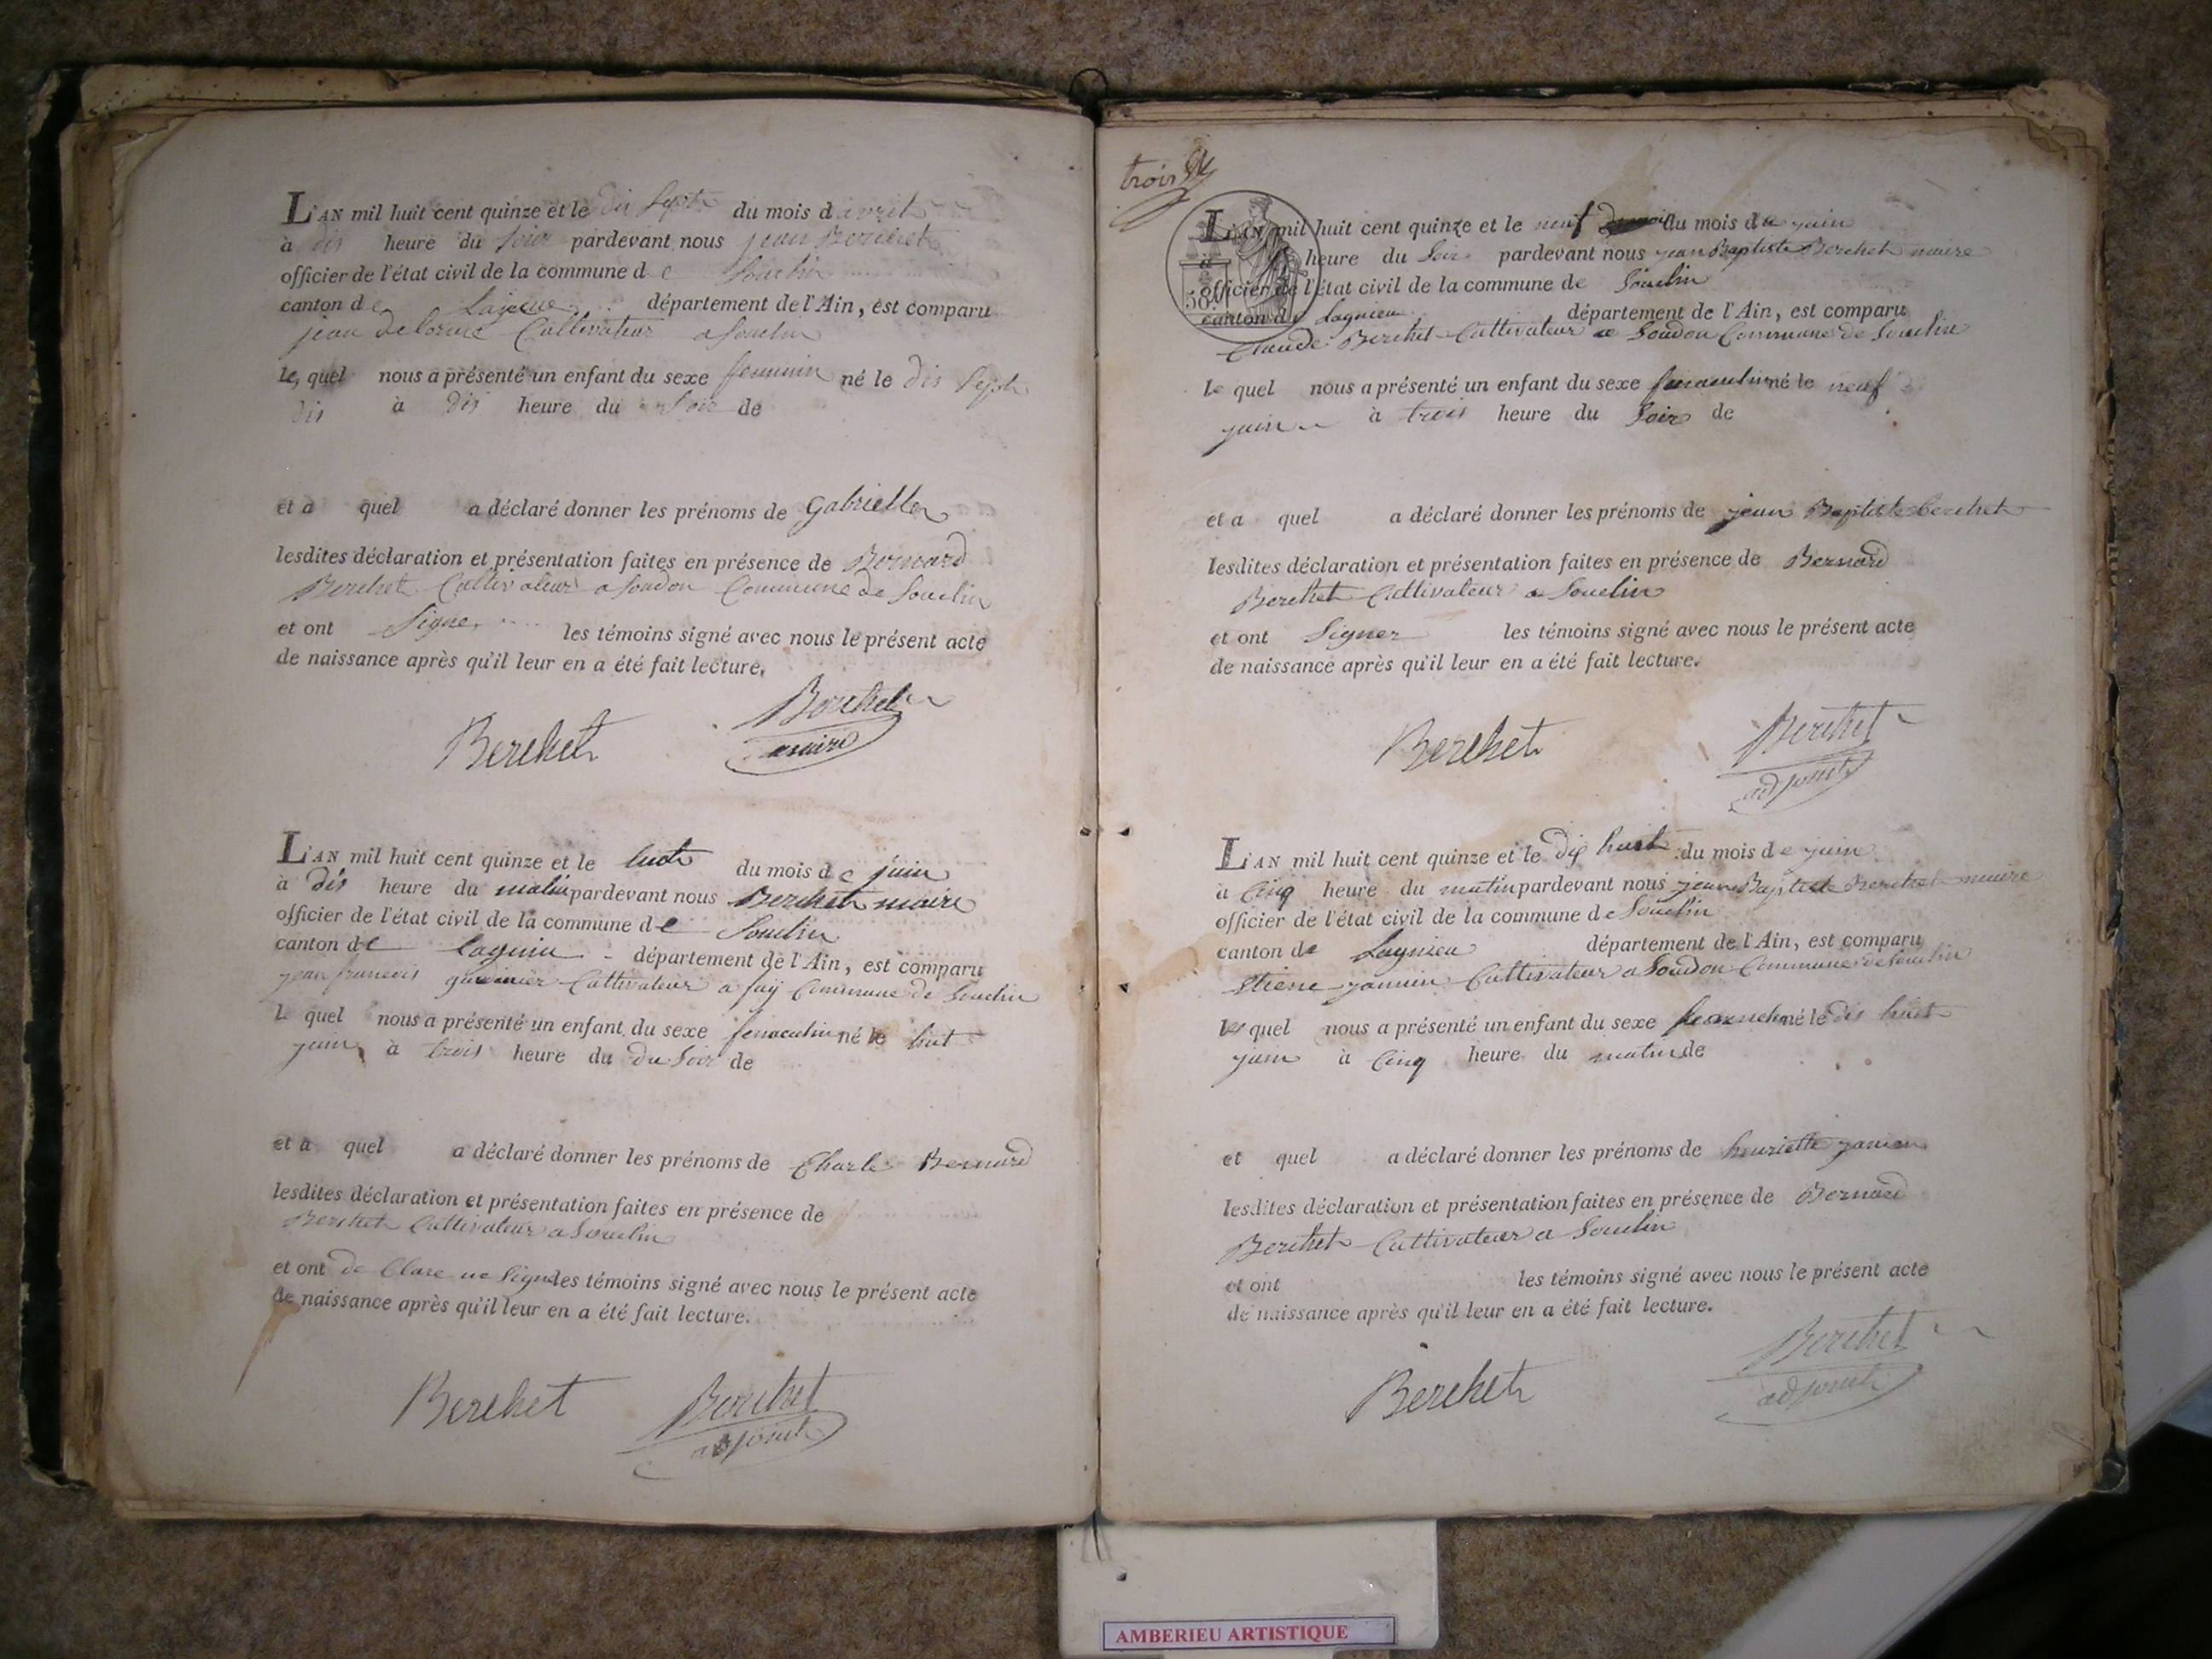 L'AN mil huit cent quinze et le dis Sept du mois d avril
à dis heure du Soir pardevant nous jean Berchet
officier de l'état civil de la commune d e Souclin
canton de département de l'Ain, est comparu
jean delorme Cultivateur a Souclin
le quel nous a présenté un enfant du sexe feminin né le dis Sept
dis à dis heure du Soir de
et a quel a déclaré donner les prénoms de Gabrielle
lesdites déclaration et présentation faites en présence de Bernard
Berchet Cultivateur a Soudon Commune de Souclin
et ont Signe les témoins signé avec nous le présent acte
de naissance après qu'il leur en a été fait lecture.
Berchet Berchet
maire
L'AN mil huit cent quinze et le huit du mois d e juin
à dis heure du matin pardevant nous Berchet maire
officier de l'état civil de la commune de Souclin
canton de Lagniu département de l'Ain, est comparu
jean francois Cultivateur a fay Commune de Souclin
le quel nous a présenté un enfant du sexe né le huit
juin à trois heure du du Soir de
et a quel a déclaré donner les prénoms de Charle Bernard
lesdites déclaration et présentation faites en présence de
Berchet Cultivateur a Souclin
et ont de Clare ne Signe les témoins signé avec nous le présent acte
de naissance après qu'il leur en a été fait lecture.
Berchet Berchet
adjoint
trois
L'AN mil huit cent quinze et le neuf du mois de juin
à heure du Soir pardevant nous jean Baptiste Berchet maire
officier de l'état civil de la commune de Souclin
canton de Lagnieu département de l'Ain, est comparu
Claude Berchet Cultivateur a Soudon Commune de Souclin
le quel nous a présenté un enfant du sexe né le neuf
juin à trois heure du Soir de
et a quel a déclaré donner les prénoms de jean Baptiste berchet
lesdites déclaration et présentation faites en présence de Bernard
Berchet Cultivateur a Souclin
et ont Signer les témoins signé avec nous le présent acte
de naissance après qu'il leur en a été fait lecture.
Berchet Berchet
adjoint
L'AN mil huit cent quinze et le dix huit du mois d e juin
à Cinq heure du matin pardevant nous jean Baptiste Berchet maire
officier de l'état civil de la commune de Souclin
canton de Lagnieu département de l'Ain, est comparu
Etiene jannin Cultivateur a Soudon Commune de Souclin
le quel nous a présenté un enfant du sexe né le dis huit
juin à Cinq heure du matin de
et quel a déclaré donner les prénoms de henriette
lesdites déclaration et présentation faites en présence de Bernard
Berchet Cultivateur a Souclin
et ont les témoins signé avec nous le présent acte
de naissance après qu'il leur en a été fait lecture.
Berchet Berchet
adjoint
AMBERIEU ARTISTIQUE